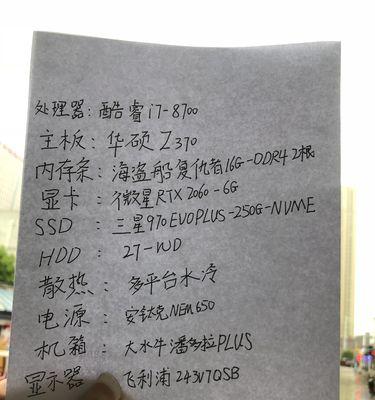 处理器：酷睿i7-8700
主板：华硕Z370
内存条：海盗船复仇者16G-DDR4 2根
显卡：微星RTX2060-6G
SSD：三星970EVOPLUS-250G-NVME
HDD：2T-WD
散热：多平台水冷
电源：安钛克NEN650
机箱：大水牛潘多拉PLUS
显示器：飞利浦243V7QSB